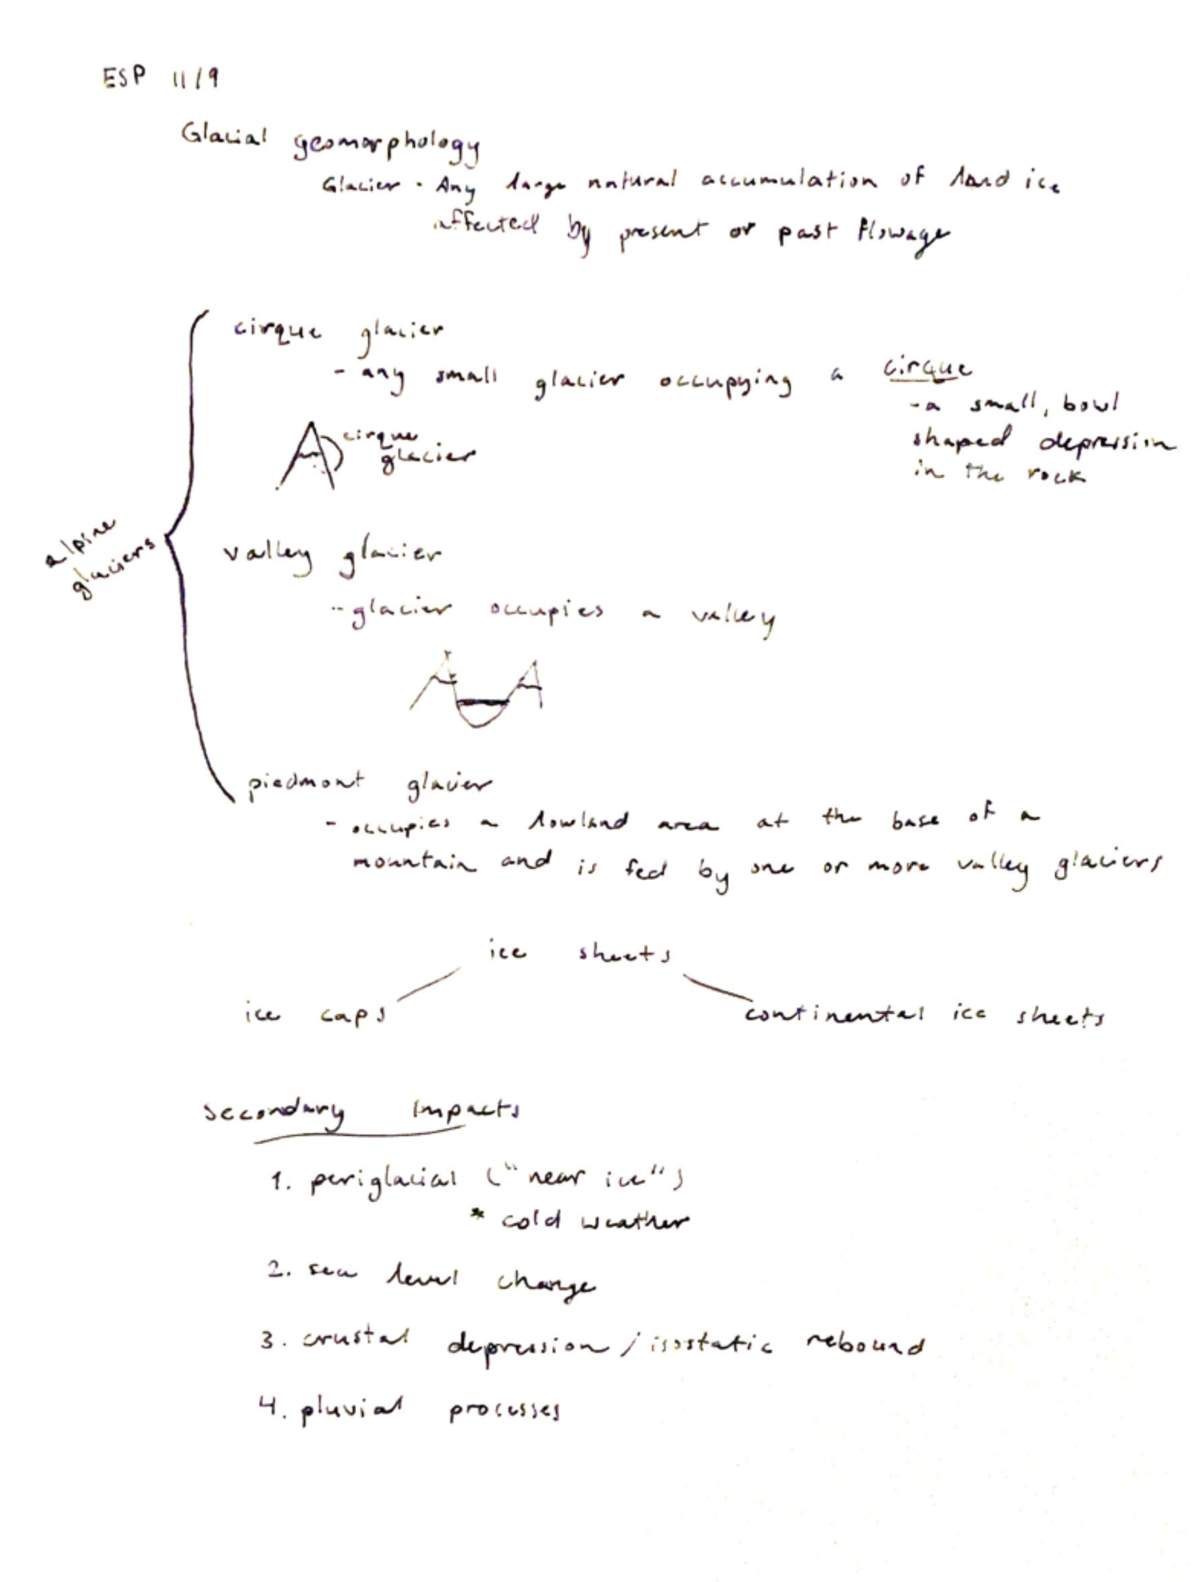 ESP 11/9
Glacial geomorphology
Glacier - Any large natural accumulation of land ice
affected by present or past flowage
cirque glacier
- any small glacier occupying a cirque
- a small, bowl
shaped depression
in the rock
cirque
glacier
alpine
glaciers
valley glacier
- glacier occupies a valley
piedmont glacier
- occupies a lowland area at the base of a
mountain and is fed by one or more valley glaciers
ice sheets
ice caps
continental ice sheets
secondary impacts
1. periglacial ("near ice")
* cold weather
2. sea level change
3. crustal depression / isostatic rebound
4. pluvial processes